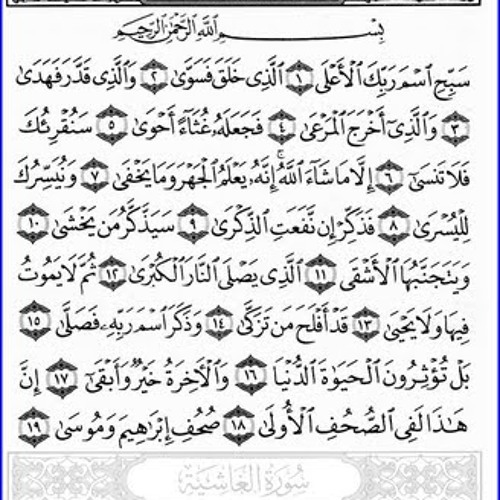 بِسْمِ اللَّهِ الرَّحْمَٰنِ الرَّحِيمِ
سَبِّحِ اسْمَ رَبِّكَ الْأَعْلَى ١ الَّذِي خَلَقَ فَسَوَّىٰ ٢ وَالَّذِي قَدَّرَ فَهَدَىٰ
٣ وَالَّذِي أَخْرَجَ الْمَرْعَىٰ ٤ فَجَعَلَهُ غُثَاءً أَحْوَىٰ ٥ سَنُقْرِئُكَ
فَلَا تَنسَىٰ ٦ إِلَّا مَا شَاءَ اللَّهُ ۚ إِنَّهُ يَعْلَمُ الْجَهْرَ وَمَا يَخْفَىٰ ٧ وَنُيَسِّرُكَ
لِلْيُسْرَىٰ ٨ فَذَكِّرْ إِن نَّفَعَتِ الذِّكْرَىٰ ٩ سَيَذَّكَّرُ مَن يَخْشَىٰ ١٠
وَيَتَجَنَّبُهَا الْأَشْقَى ١١ الَّذِي يَصْلَى النَّارَ الْكُبْرَىٰ ١٢ ثُمَّ لَا يَمُوتُ
فِيهَا وَلَا يَحْيَىٰ ١٣ قَدْ أَفْلَحَ مَن تَزَكَّىٰ ١٤ وَذَكَرَ اسْمَ رَبِّهِ فَصَلَّىٰ ١٥
بَلْ تُؤْثِرُونَ الْحَيَوٰةَ الدُّنْيَا ١٦ وَالْآخِرَةُ خَيْرٌ وَأَبْقَىٰ ١٧ إِنَّ
هَٰذَا لَفِي الصُّحُفِ الْأُولَىٰ ١٨ صُحُفِ إِبْرَاهِيمَ وَمُوسَىٰ ١٩
سُورَةُ الْغَاشِيَةِ